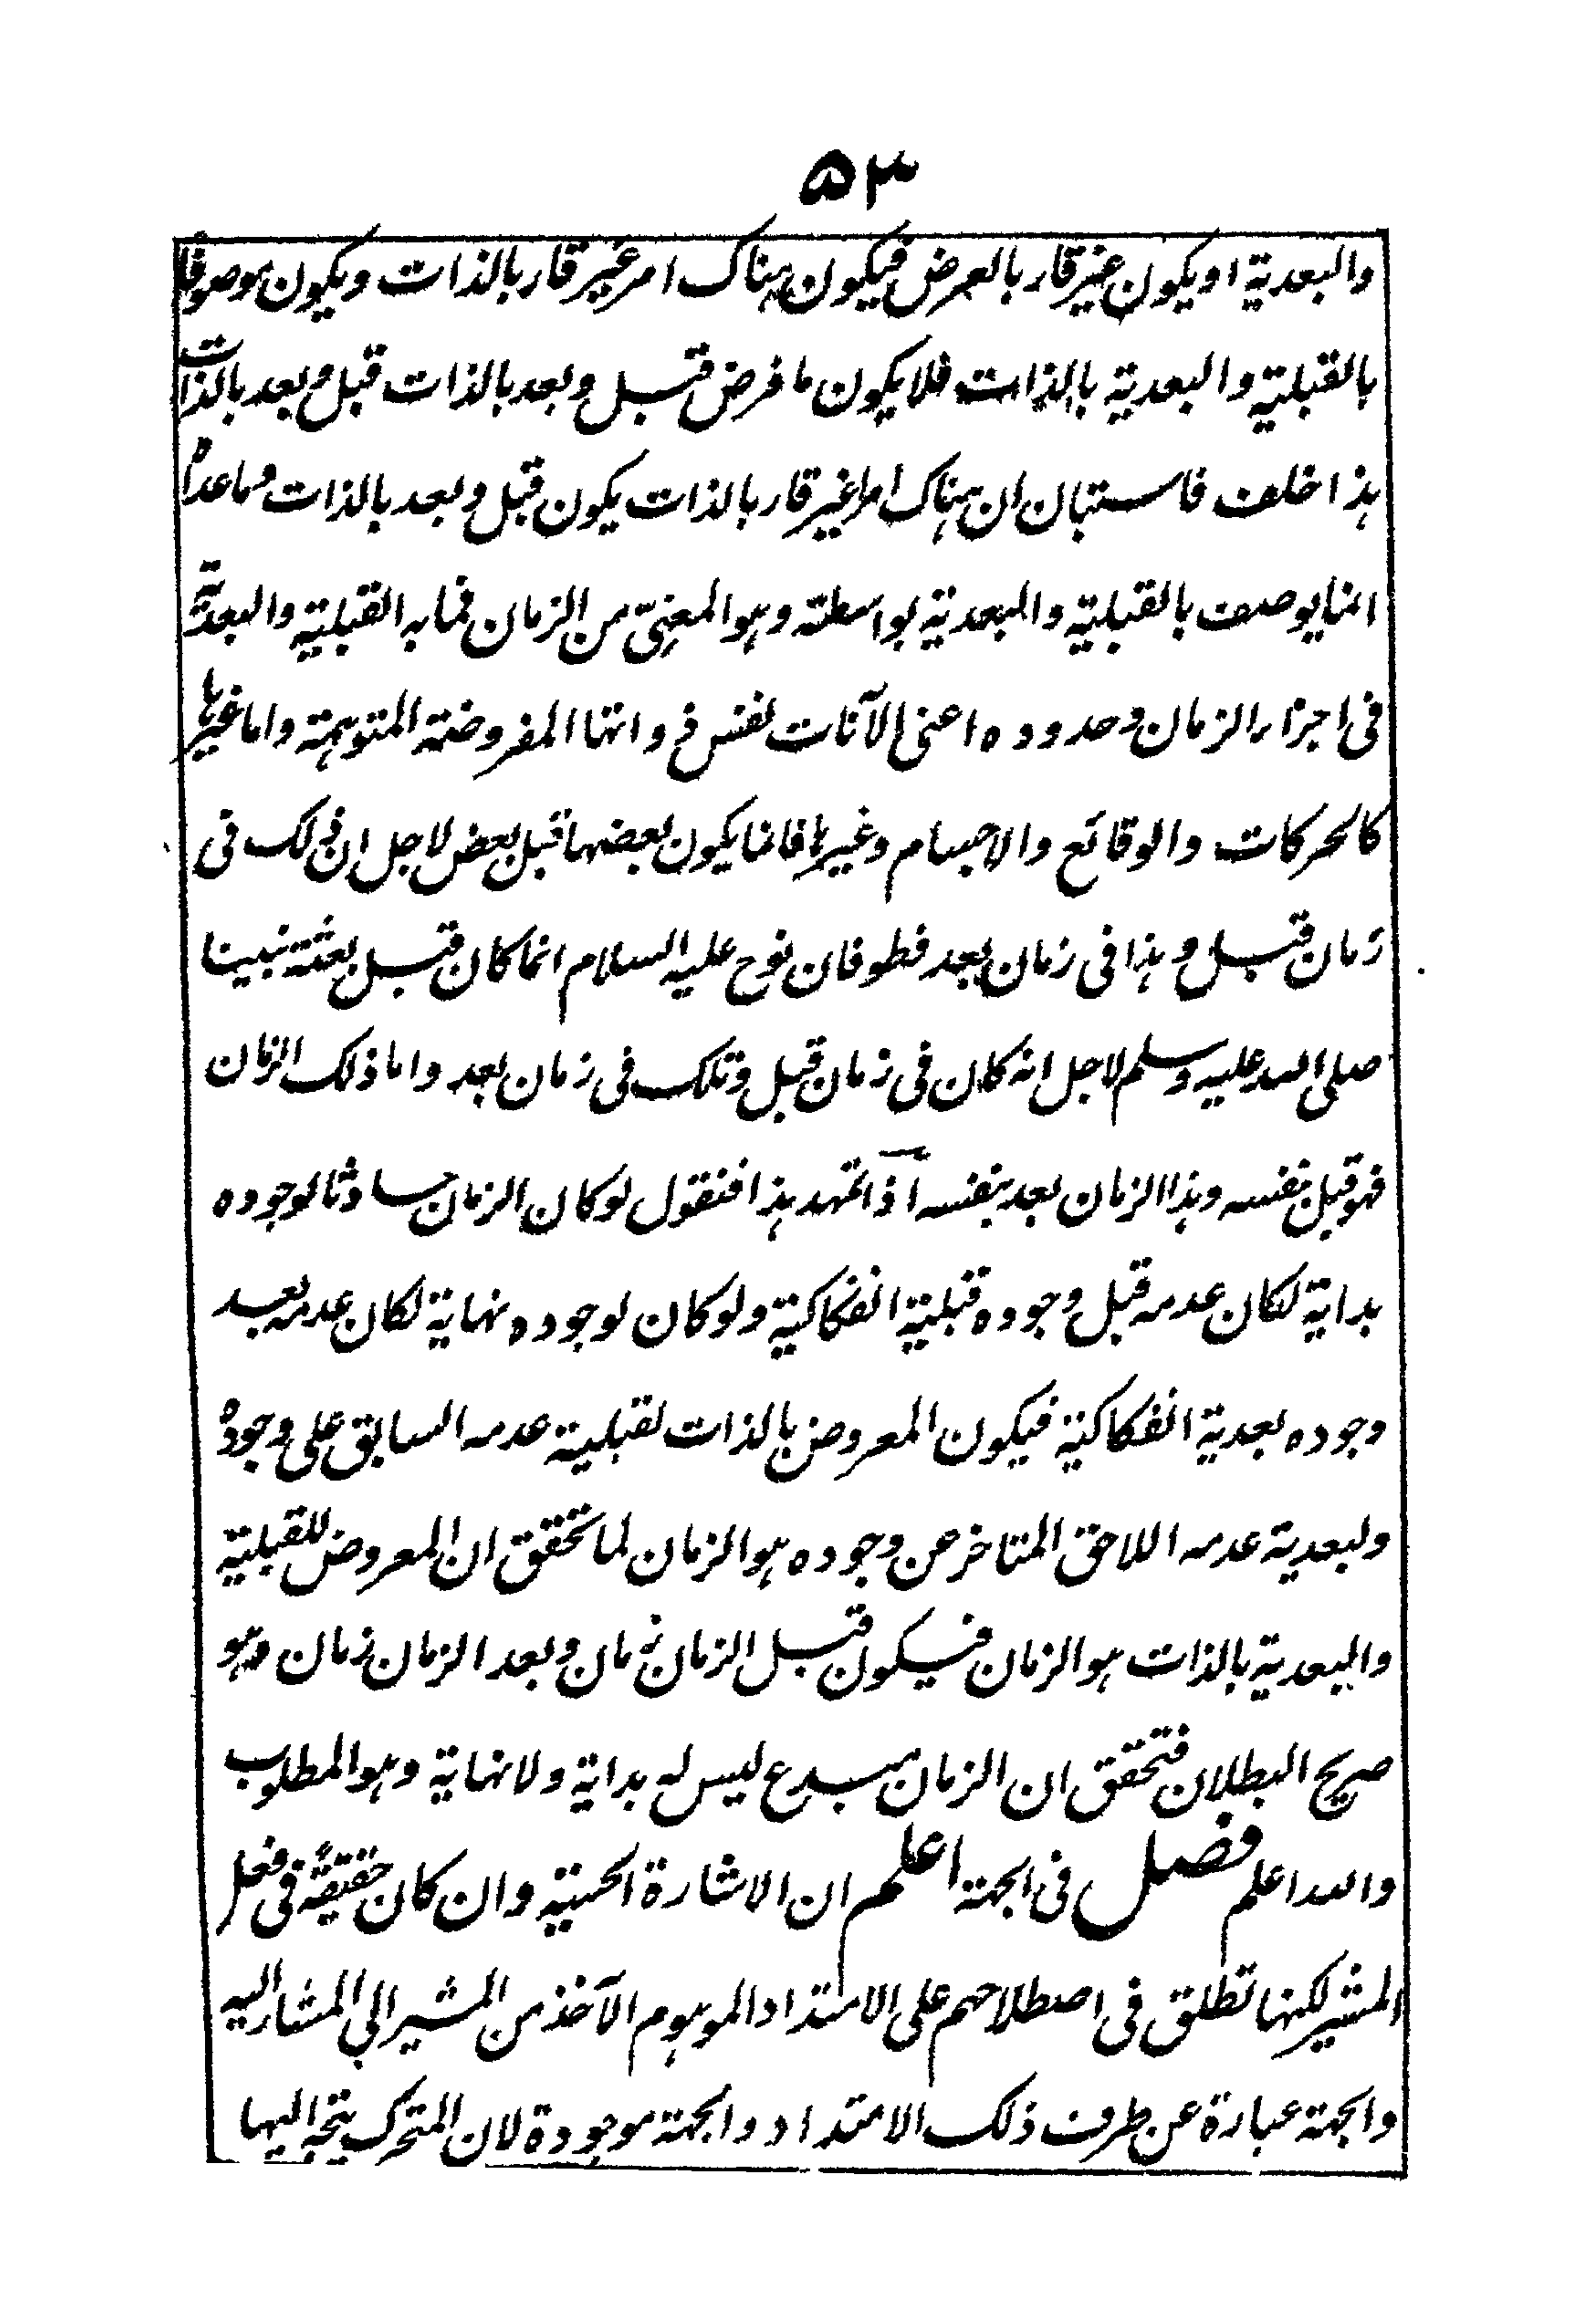 ۵۳
والبعدية او يكون غير قار بالعرض فيكون هناك امر غير قار بالذات ويكون موصوفا
بالقبلية والبعدية بالذات فلا يكون ما فرض قبل وبعد بالذات قبل وبعد بالذات
هذا خلف فاستبان ان هناك امرا غير قار بالذات يكون قبل وبعد بالذات وما عداه
انما يوصف بالقبلية والبعدية بواسطته وهو المعنيّ من الزمان فما به القبلية والبعدية
فى اجزاء الزمان وحدوده اعنى الآنات نفس ذواتها المفروضة المتوهمة واما غيرها
كالحركات والوقائع والاجسام وغيرها فانما يكون بعضها قبل بعض لاجل ان ذلك فى
زمان قبل وهذا فى زمان بعد فطوفان نوح عليه السلام انما كان قبل بعثة نبينا
صلى الله عليه وسلم لاجل انه كان فى زمان قبل وتلك فى زمان بعد واما ذلك الزمان
فهو قبل بنفسه وهذا الزمان بعد بنفسه اذا تمهد هذا فنقول لو كان الزمان حادثا لوجوده
بداية لكان عدمه قبل وجوده قبلية انفكاكية ولو كان لوجوده نهاية لكان عدمه بعد
وجوده بعدية انفكاكية فيكون المعروض بالذات لقبلية عدمه السابق على وجوده
ولبعدية عدمه اللاحق المتاخر عن وجوده هو الزمان لما تحقق ان المعروض للقبلية
والبعدية بالذات هو الزمان فيكون قبل الزمان زمان وبعد الزمان زمان وهو
صريح البطلان فتحقق ان الزمان مبدع ليس له بداية ولا نهاية وهو المطلوب
والله اعلم فصل فى الجهة اعلم ان الاشارة الحسية وان كان حقيقةً فى فعل
المشير لكنها تطلق فى اصطلاحهم على الامتداد الموهوم الآخذ من المشير الى المشار اليه
والجهة عبارة عن طرف ذلك الامتداد والجهة موجودة لان المتحرك يتجه اليها